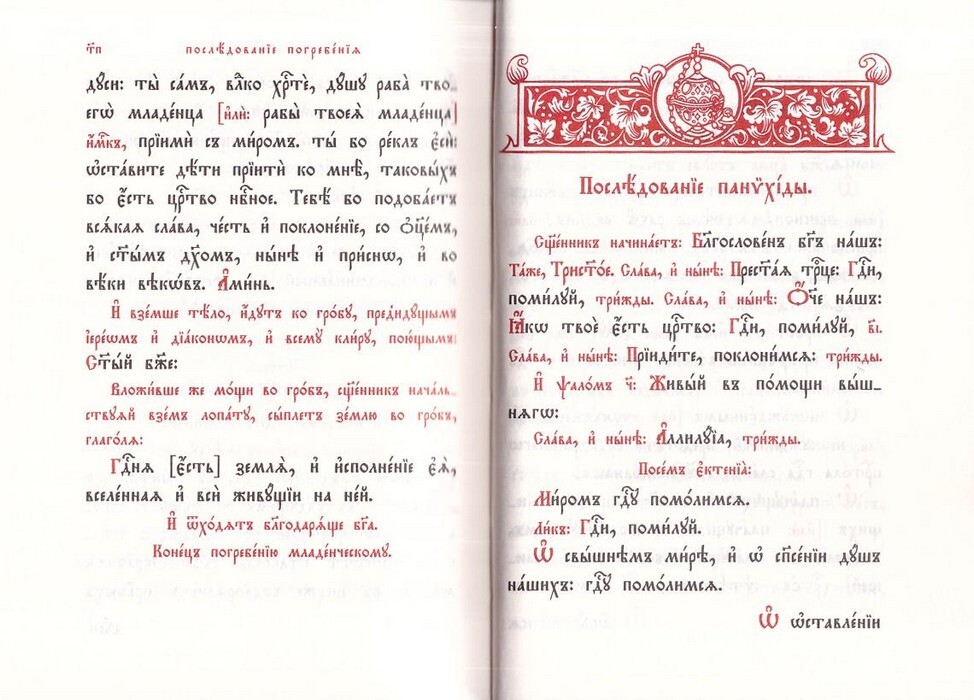 т҃п послѣ́дованїе погребе́нїѧ
дꙋ́си: ты̀ са́мъ, влⷣко хрⷭ҇тѐ, дꙋ́шꙋ раба̀ тво_
егѡ̀ младе́нца [и҆лѝ: рабы̀ твоеѧ̀ младе́нца]
и҆́м҃къ, прїимѝ съ ми́ромъ. ты́ бо ре́клъ є҆сѝ:
ѡ҆ста́вите дѣ́ти прїитѝ ко мнѣ̀, таковы́хъ
бо є҆́сть црⷭ҇тво нбⷭ҇ное. Тебѣ́ бо подоба́етъ
всѧ́каѧ сла́ва, че́сть и҆ поклоне́нїе, со ѻ҆ц҃е́мъ,
и҆ ст҃ы́мъ дх҃омъ, ны́нѣ и҆ при́снѡ, и҆ во
вѣ́ки вѣкѡ́въ. А҆ми́нь.
И҆ взе́мше тѣ́ло, и҆́дꙋтъ ко гро́бꙋ, предидꙋ́щымъ
і҆ере́ѡмъ и҆ дїа́кѡнѡмъ, и҆ всемꙋ̀ кли́рꙋ, пою́щымъ:
Ст҃ы́й бж҃е:
Вложи́вше же мо́щи во гро́бъ, сщ҃е́нникъ нача́ль_
ствꙋѧй взе́мъ лопа́тꙋ, сы́плетъ зе́млю во гро́бъ,
глаго́лѧ:
Гдⷭ҇нѧ [є҆́сть] землѧ̀, и҆ и҆сполне́нїе є҆ѧ̀,
вселе́ннаѧ и҆ всѝ живꙋ́щїи на не́й.
И҆ ѿхо́дѧтъ бл҃годарѧ́ще бг҃а.
Коне́цъ погребе́нїю младе́нческомꙋ.
Послѣ́дованїе панѷхі́ды.
Сщ҃е́нникъ начина́етъ: Бл҃гослове́нъ бг҃ъ на́шъ:
Та́же, Трист҃о́е. Сла́ва, и҆ ны́нѣ: Прест҃а́ѧ трⷪ҇це: Гдⷭ҇и,
поми́лꙋй, три́жды. Сла́ва, и҆ ны́нѣ: Ѻ҆́ч҃е на́шъ:
Ꙗ҆́кѡ твоѐ є҆́сть црⷭ҇тво: Гдⷭ҇и, поми́лꙋй, в҃і.
Сла́ва, и҆ ны́нѣ: Прїиди́те, поклони́мсѧ: три́жды.
И҆ ѱало́мъ ч҃: Живы́й въ по́мощи вы́ш_
нѧгѡ:
Сла́ва, и҆ ны́нѣ: А҆ллилꙋ́їа, три́жды.
Посе́мъ є҆ктенїа̀:
Ми́ромъ гдⷭ҇ꙋ помо́лимсѧ.
Ли́къ: Гдⷭ҇и, поми́лꙋй.
Ѡ҆ свы́шнѣмъ ми́рѣ, и҆ ѡ҆ сп҃се́нїи дꙋ́шъ
на́шихъ: гдⷭ҇ꙋ помо́лимсѧ.
Ѡ҆ ѡ҆ставле́нїи